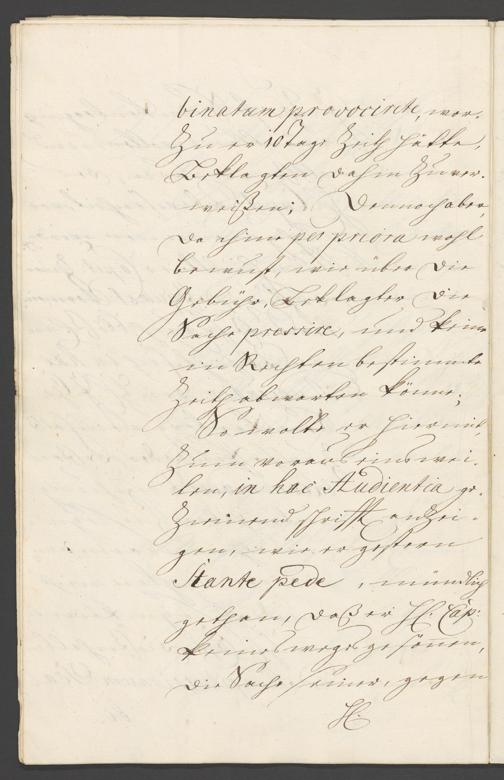 binatum provocirete, wor-
zu er 10 Tage Zeith hätte,
Beklagten dahin zu ver-
weißen; Dennoch aber,
da ihme per priora wohl
bewust, wie über die
Gebühr, Beklagter die
Sache pressire, und keine
in Rechten bestimmte
Zeith abwarten könne;
So wolte er hiermit,
zum voraus einswei-
len, in hac Audientia ge-
ziemend schrifftl anzei-
gen, wie er gestern
Stante pede, mündlich
gethan, daß er H: Cap:
keineswegs gesonnen,
die Sache seiner, gegen
H: